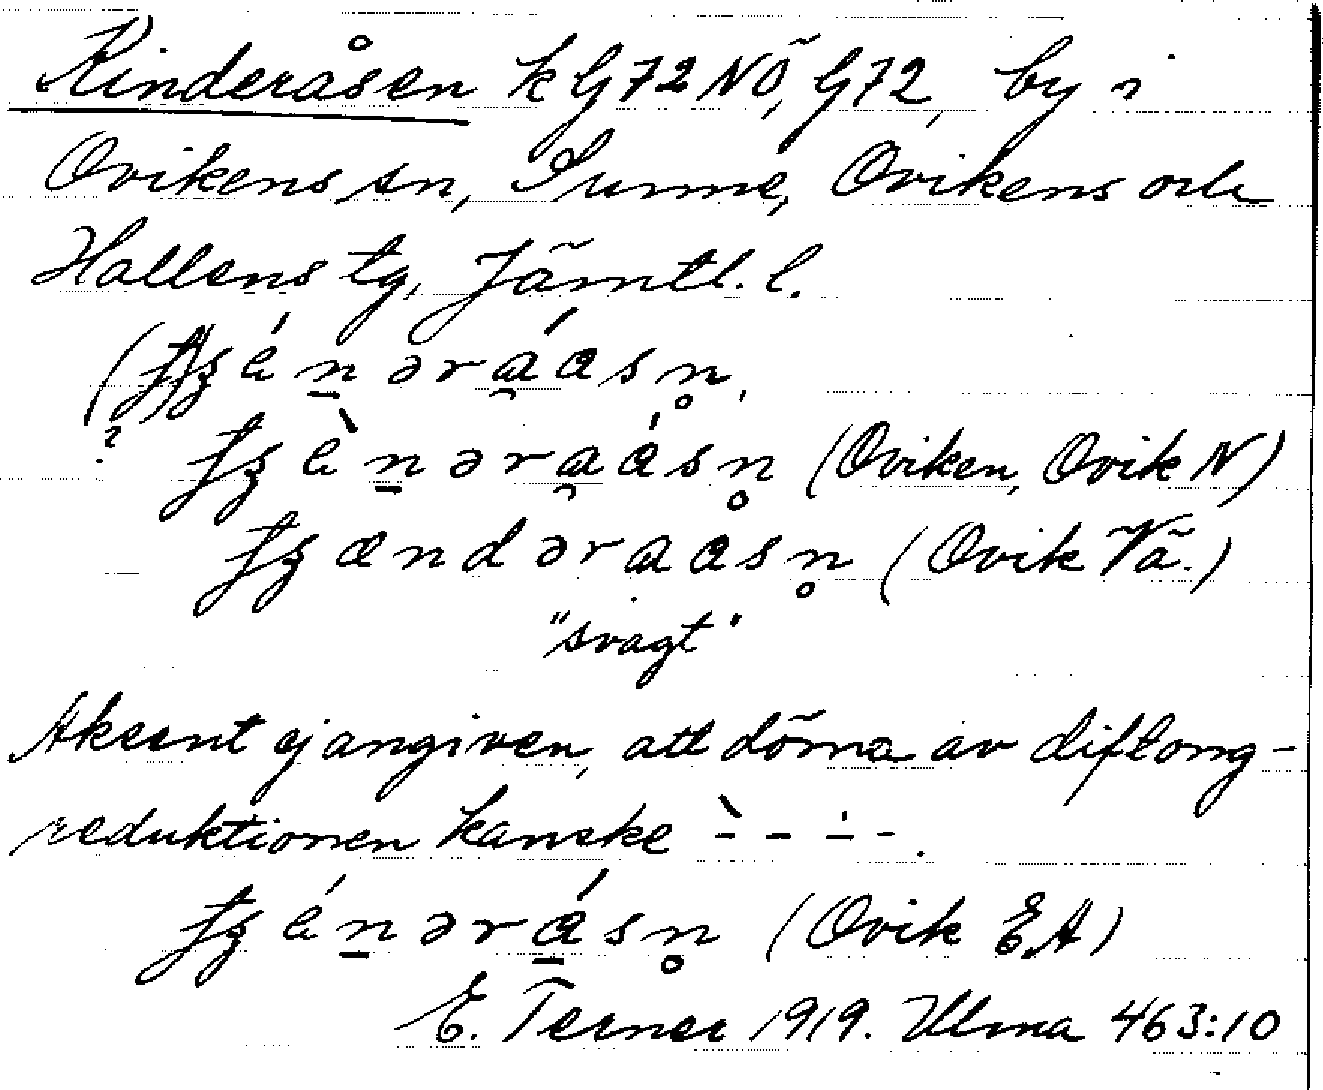 Kinderåsen k G72 NÖ, G72, by i
Ovikens sn, Sunne, Ovikens och
Hallens tg, Jämtl. l.
ə r a a s n̥,
? n ə r a á s n̥ (Oviken, Ovik N)
æ n d ə r a a s n̥ (Ovik Vä.)
"svagt"
Aksent ej angiven, att döma av diftong-
reduktionen kanske ` - - ´ - .
é n ə r á s n̥ (Ovik EA)
E. Terner 1919. Ulma 463:10